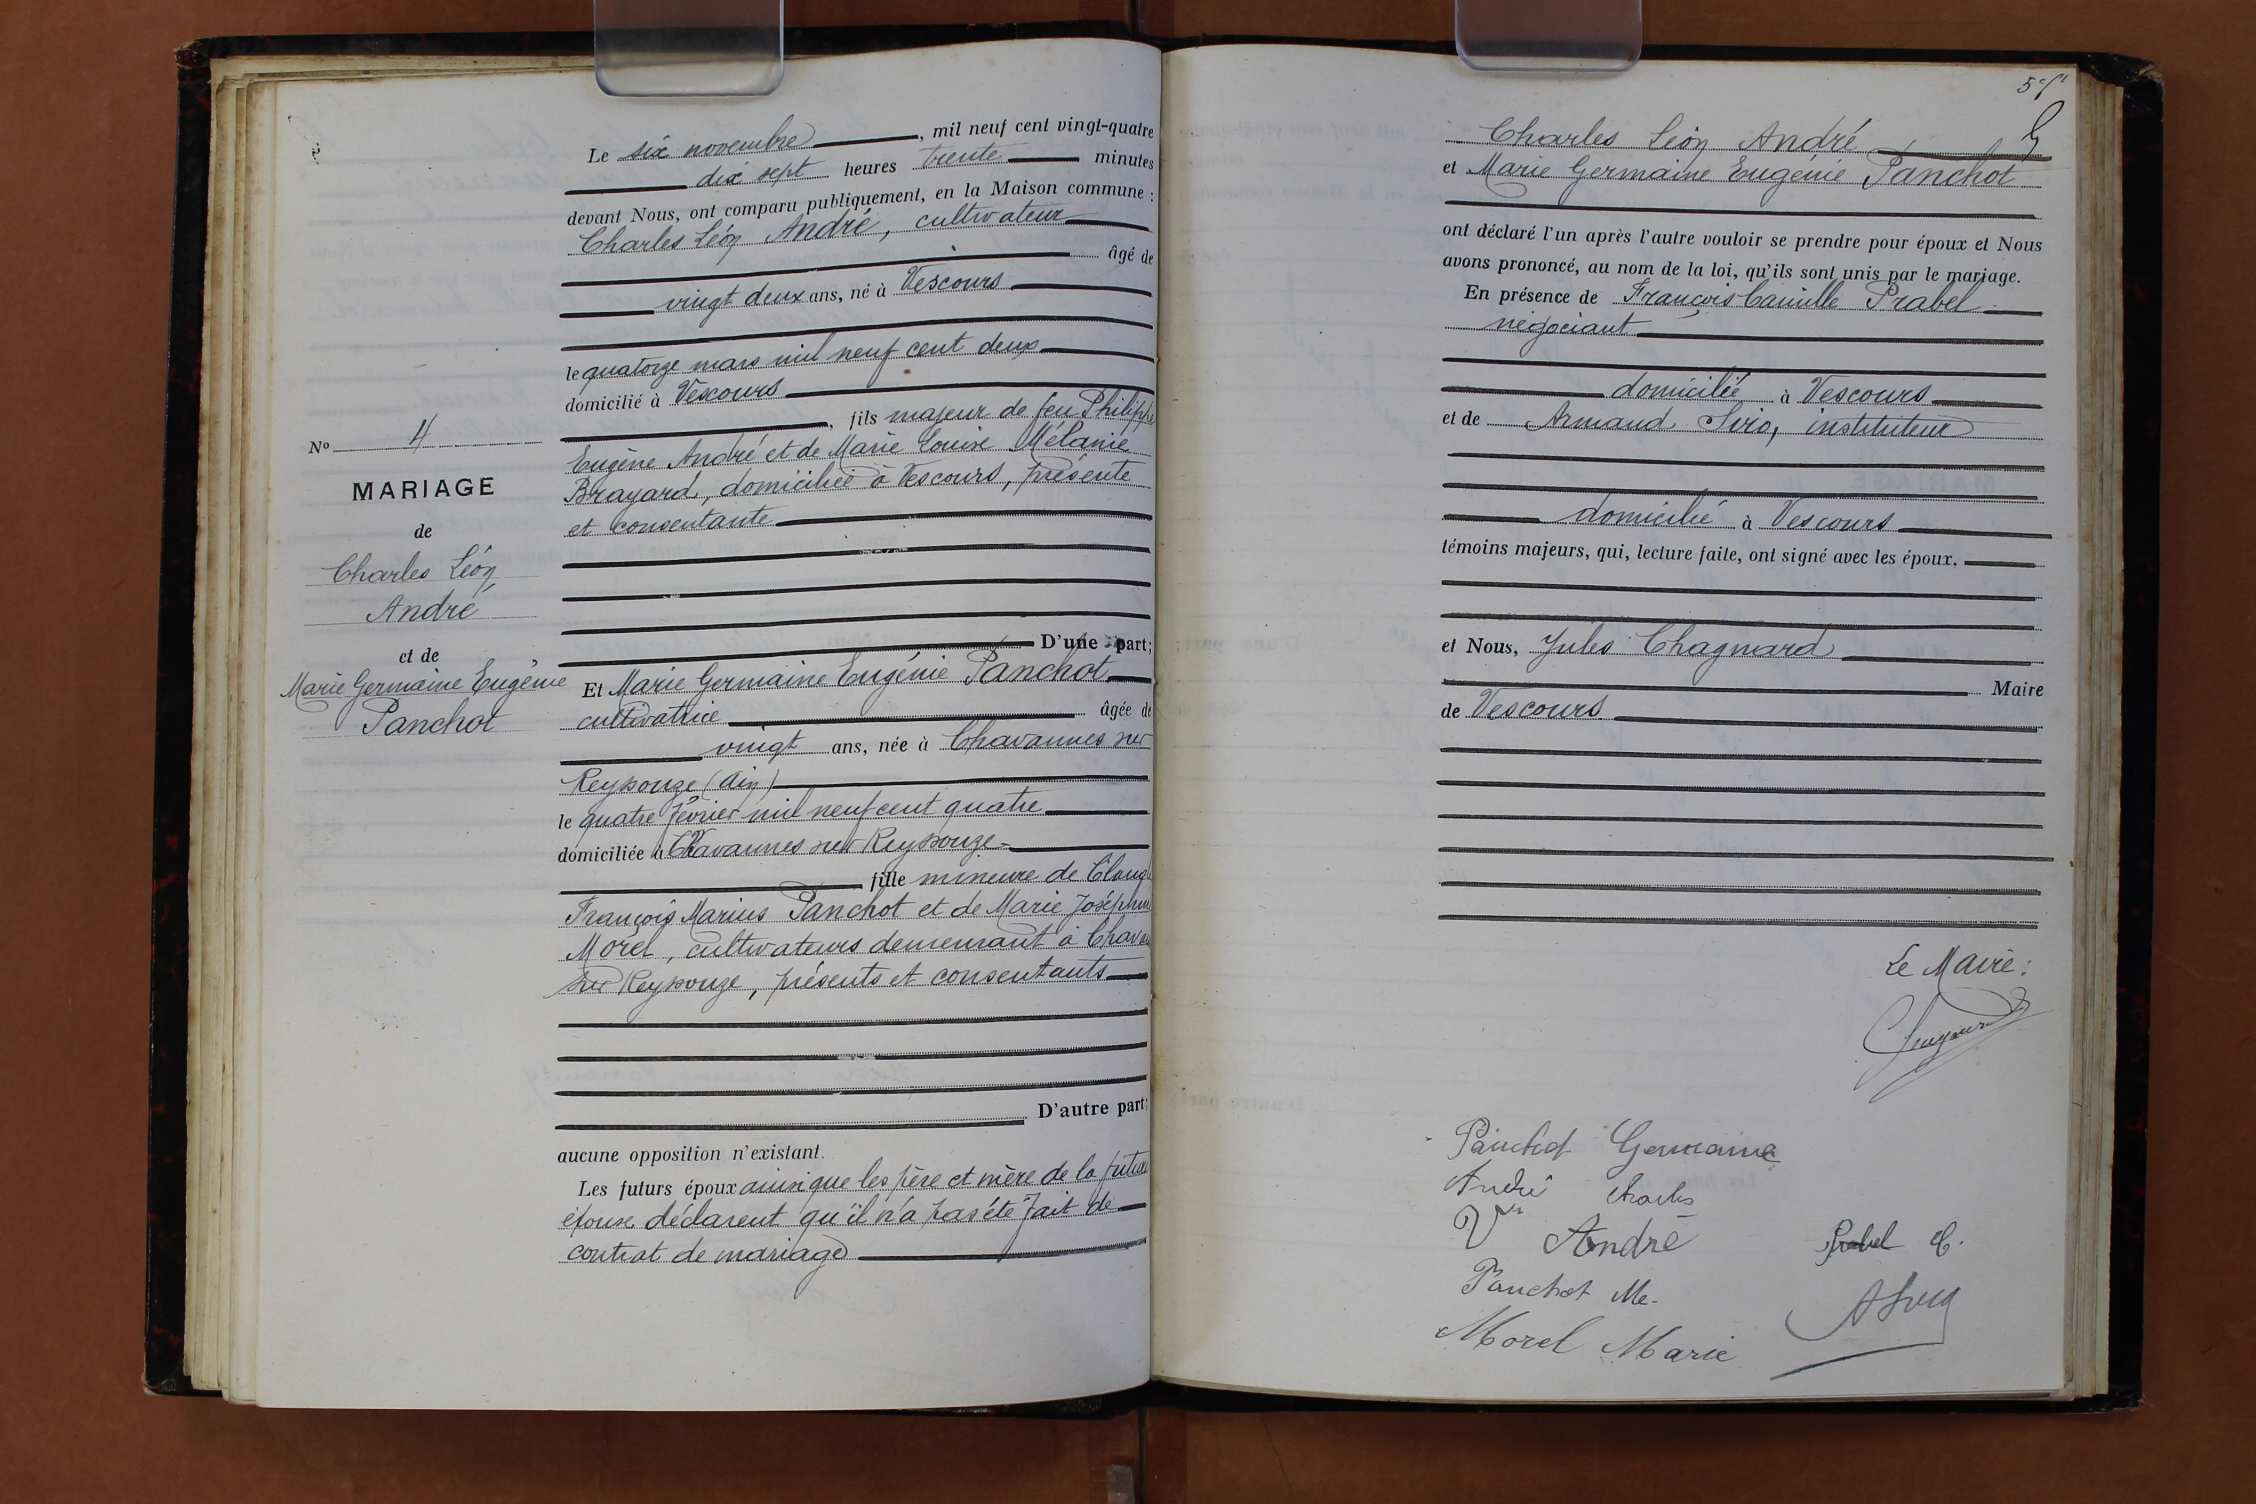 Nº 4
MARIAGE
de
Charles Léon
André
et de
Marie Germaine Eugénie
Panchot
Le six novembre, mil neuf cent vingt-quatre
dix sept heures trente minutes
devant Nous, ont comparu publiquement, en la Maison commune :
Charles Léon André, cultivateur
âgé de
vingt deux ans, né à Vescours
le quatorze mars mil neuf cent deux
domicilié à Vescours
, fils majeur de feu Philippe
Eugène André et de Marie Louise Mélanie
Brayard, domiciliée à Vescours, présente
et consentante
D'une part;
Et Marie Germaine Eugénie Panchot
cultivatrice âgée de
vingt ans, née à Chavannes sur
Reyssouze (Ain)
le quatre février mil neuf cent quatre
domiciliée à Chavannes sur Reyssouze
fille mineure de Claude
François Marius Panchot et de Marie Joséphine
Morel, cultivateurs demeurant à Chavannes
sur Reyssouze, présents et consentants
D'autre part;
aucune opposition n'existant.
Les futurs époux ainsi que les père et mère de la future
épouse déclarent qu'il n'a pas été fait de
contrat de mariage
Charles Léon André
et Marie Germaine Eugénie Panchot
ont déclaré l'un après l'autre vouloir se prendre pour époux et Nous
avons prononcé, au nom de la loi, qu'ils sont unis par le mariage.
En présence de François Camille Prabel
négociant
domicilié à Vescours
et de Armand Sirio, instituteur
domicilié à Vescours
témoins majeurs, qui, lecture faite, ont signé avec les époux.
et Nous, Jules Chagnard
Maire
de Vescours
Le Maire :
Panchot Germaine
André Charles
Vve André
Prabel C.
Panchot Me
Morel Marie